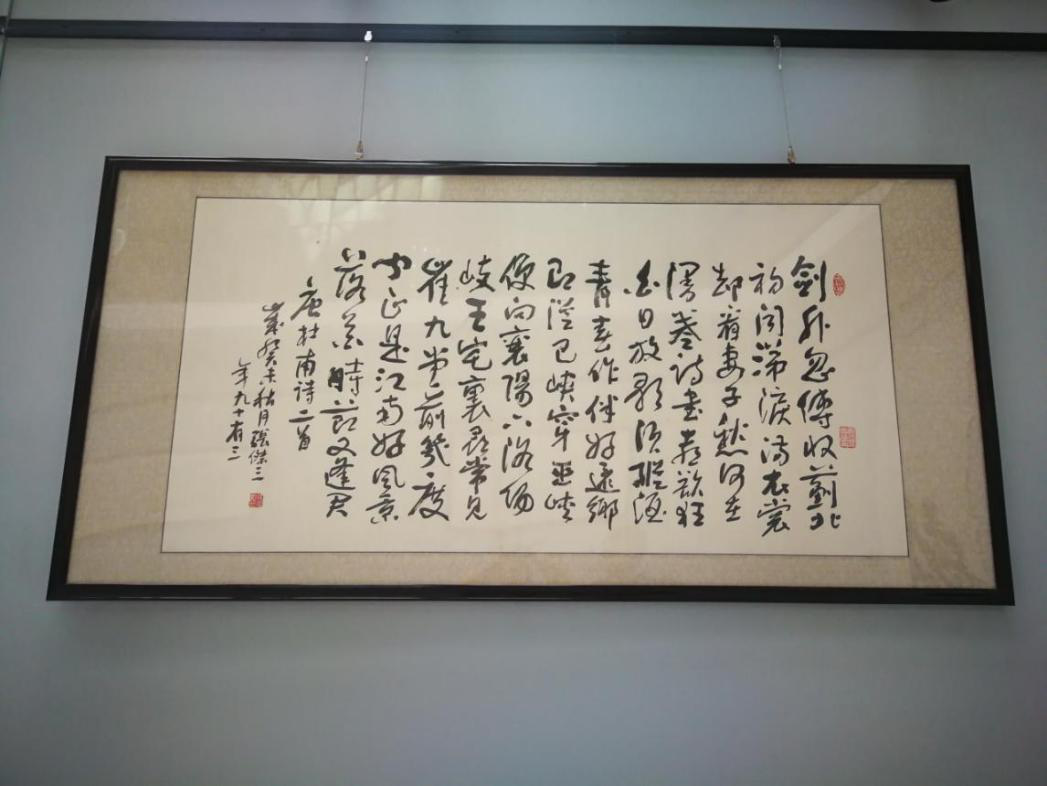 劍外忽傳收薊北
初聞涕淚滿衣裳
却看妻子愁何在
漫卷詩書喜欲狂
白日放歌須縱酒
青春作伴好還鄉
即從巴峽穿巫峽
便向襄陽下洛陽
岐王宅裏尋常見
崔九堂前幾度
聞正是江南好風景
落花時節又逢君
唐杜甫詩二首
歲癸未月傑三
年九十有三